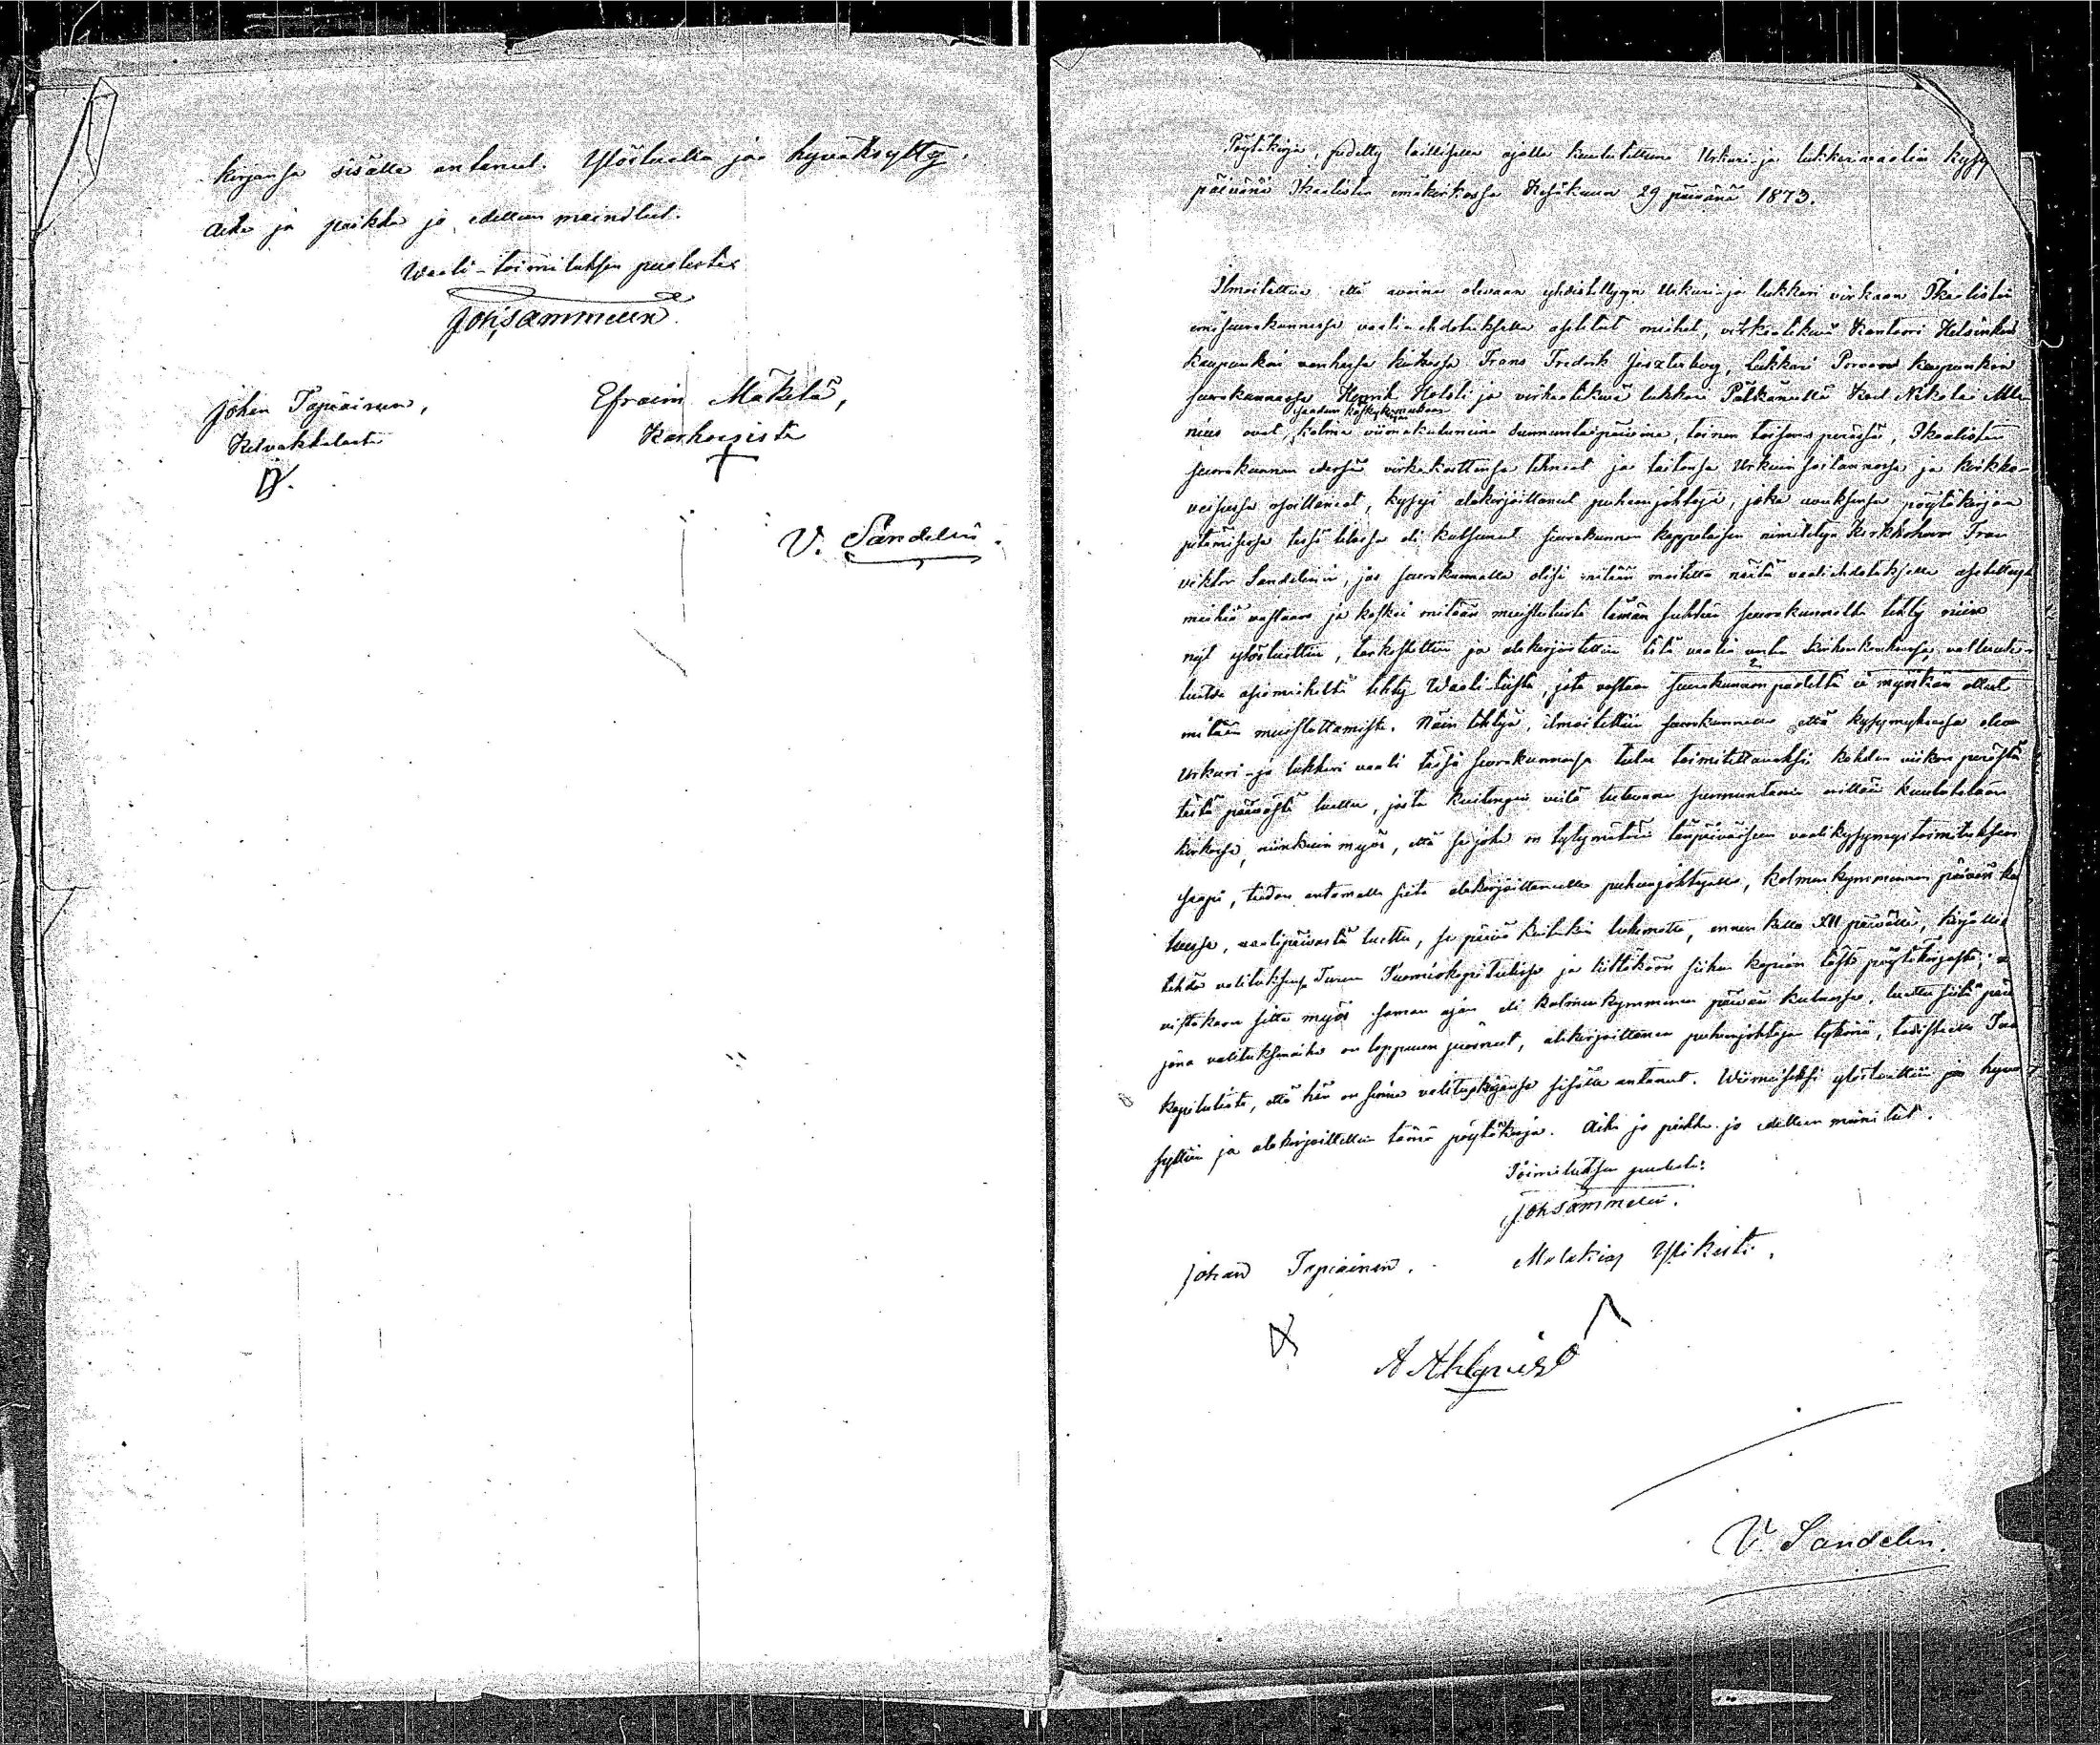 kirjansa sisälle antanut. Ylösluettu ja hyväksytty.
Aika ja paikka jo edellen mainitut.
Waali-toimituksen puolesta
Joh. Sammelin
Johan Tapiainen, Efraim Mäkelä,
Kelvakkalasta Karhoisista
V. Sandelin.
Pöytäkirja, pidetty laillisella ajalla kuulutettuna Urkuri ja lukkarinvaalin kysy
päivänä Ikaalisten emäkirkossa Kesäkuun 29 päivänä 1873.
Ilmoitettiin että avoina olevaan yhdistettyyn Urkuri- ja lukkari virkaan Ikaalisten
emäseurakunnassa vaaliehdotukselle asetetut miehet, virkaatekevä Kanttori Helsinkin
kaupunkin vanhassa kirkossa Frans Fredrik, Lukkari Porvoon kaupunkin
seurakunnassa Henrik Hololi ja virkaatekevä lukkari Pälkäneellä Karl Nikolai Ale
nius ovat, kolmena viimekuluneina sunnuntaipäivinä, toinen toisensa perästä, Ikaalisten
seurakunnan edessä virkakoettensa tehneet ja taitonsa Urkuin soitannossa ja kirkko-
veisussa osoittaneet, kysyi alakirjoittanut puheenjohtaja, joka avuksensa pöytäkirjan
pitämisessä tässä tilassa oli kutsunut seurakunnan kappalaisen nimitetyn Kirkkoherra Fran
Viktor Sandelinin, jos seurakunnalla olisi mitään moitetta näitä vaaliehdotukselle asetettuja
miehiä vastaan ja koska mitään muistutusta tämän suhteen seurakunnalta tehty niin
nyt ylösluettiin, tarkastettiin ja alakirjoitettiin tätä vaalia varten kirkonkokouksessa valtuute-
tuilta asiamiehiltä tehty Waali-lista, jota vastaan seurakunnan puolelta ei myöskään ollut
mitään muistuttamista. Näin tehtyä, ilmoitettiin seurakunnalle että kysymyksessä oleva
Urkuri- ja lukkari vaali tässä seurakunnassa tulee toimitettavaksi kahden viikon perästä
tästä päivästä luettu, josta kuitengin vielä tulevana sunnuntaina erittäin kuulutetaan
kirkossa, niinkuin myös, että se joka on tytymätön tänpäiväiseen vaalikysymystoimitukseen
saapi, tiedon antamalla siitä alakirjoittaneelle puheenjohtajalle, kolmenkymmenen päivän ku
luessa, vaalipäivästä luettu, se päivä kuitenkin lukematta, ennen kello XII päivällä, kirjallis
tehdä valituksensa Turun Tuomiokapituliissa ja liittäköön siihen kopian tästä pöytäkirjasta;
vistakoon sitte myös saman ajan eli kolmenkymmenen päivän kuluessa, luettu siitä päi
jona valituksenaika on loppuun juosnut, alakirjoittaneen puheenjohtajan tykönä, todistuksella Tuo
kapitulista, että hän on sinne valituskirjansa sisälle antanut. Wiimeiseksi ylösluettiin ja hyvä
syttiin ja alakirjoitettiin tämä pöytäkirja. Aika ja paikka jo edellen mainitut.
Toimituksen puolesta:
Joh. Sammelin.
Johan Tapiainen. Malakias Ylikesti.
A Ahlqvist
V. Sandelin.